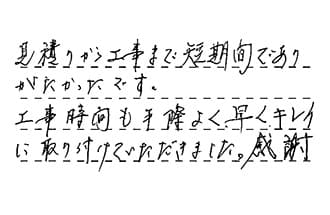 見積りから工事まで短期間であり
がたかったです。
工事時間も手際よく早くキレイ
に取り付けていただきました。感謝